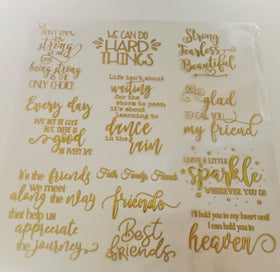 WE
DON'T KNOW
how
strong
we are
until
being strong
IS THE
ONLY CHOICE
WE CAN DO
HARD
THINGS
Strong
Fearless
Beautiful
Every day
MAY NOT BE GOOD
BUT THERE IS
good
IN EVERY DAY
Life isn't about
waiting
for the
storm to pass,
it's about
learning to
dance
in the
rain
SO
glad
TO CALL YOU
my friend
It's the friends
we meet
along the way
that help us
appreciate
the journey
Faith Family Friends
friends
Best
friends
LEAVE A LITTLE
sparkle
WHEREVER YOU GO
I'll hold you in my heart until
I can hold you in
heaven